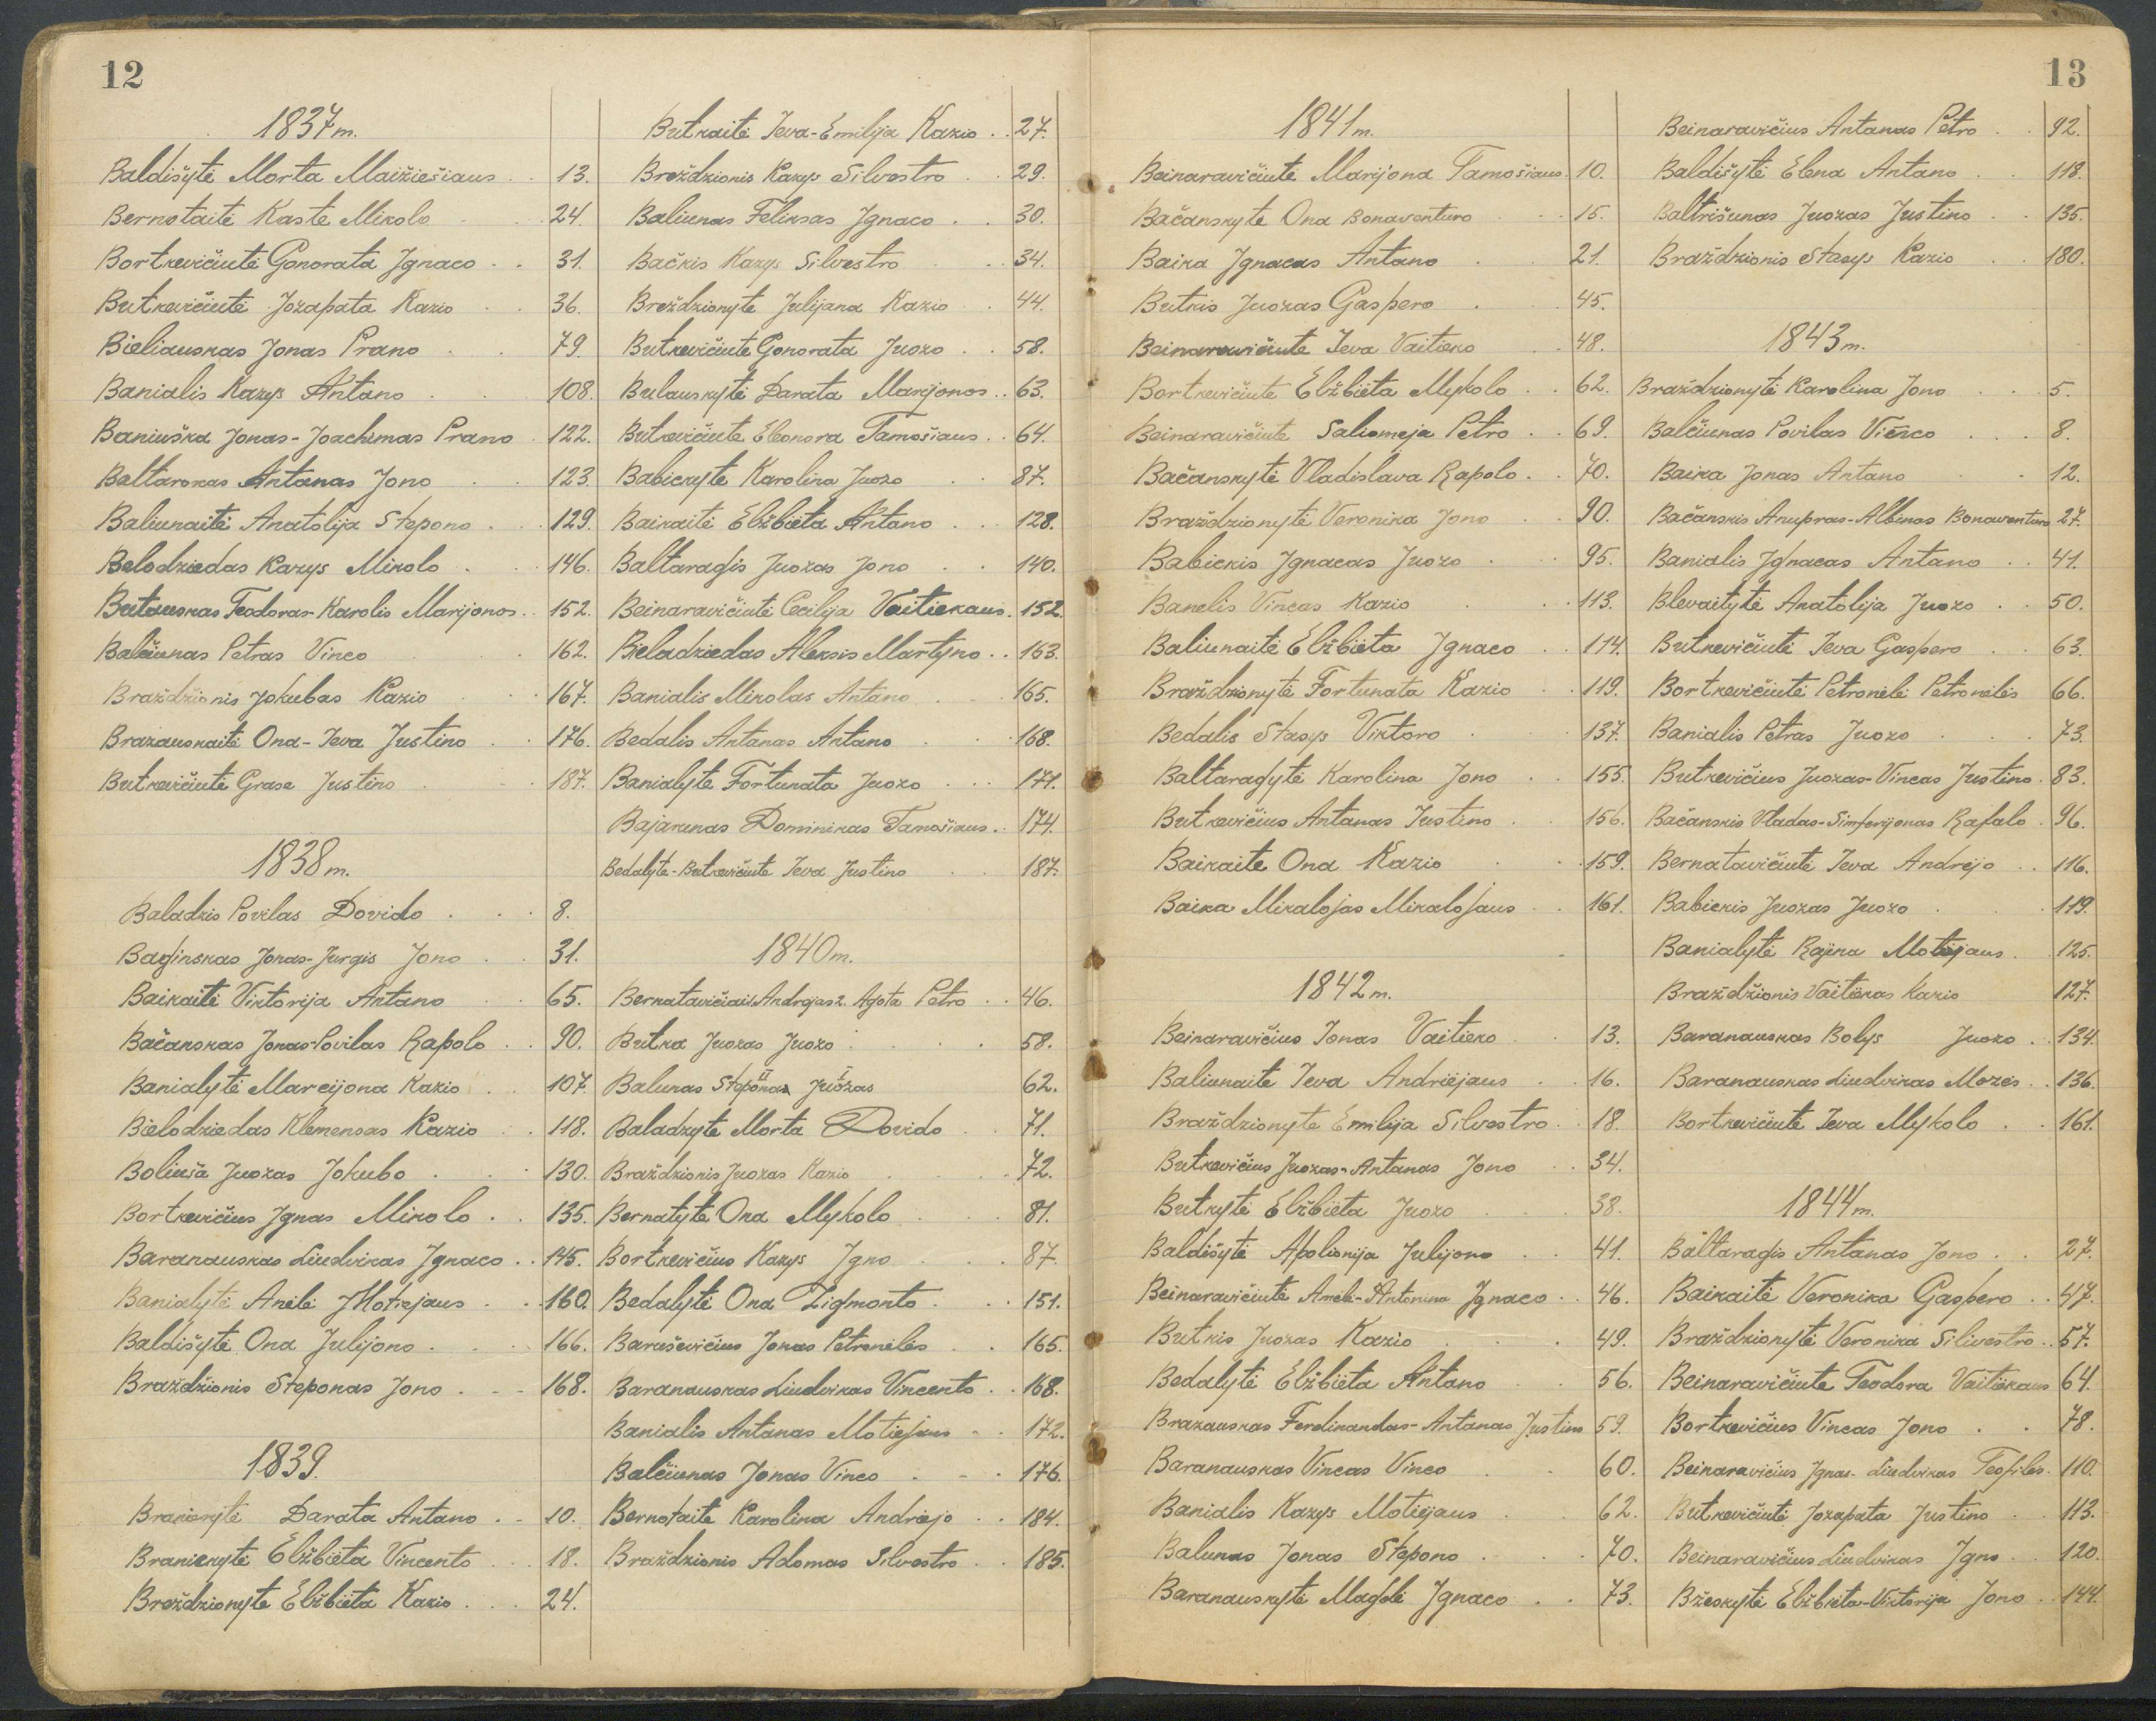 12
1837 m.
Baldišytė Morta Maižiešiaus . . 13.
Bernotaitė Kaste Mikolo . . 24.
Bortkevičiutė Gonorata Jgnaco . . 31.
Butkevičiutė Jozapata Kazio . . 36.
Bieliauskas Jonas Prano . . 79.
Banialis Kazys Antano . . 108.
Baniuška Jonas-Joachimas Prano . 122.
Baltarokas Antanas Jono . . 123.
Baliunaitė Anatolija Stepono . . 129.
Belodziedas Kazys Mikolo . . 146.
Butauskas Teodoras-Karolis Marijonos . . 152.
Balčiunas Petras Vinco . . 162.
Braždžionis Jokubas Kazio . . 167.
Brazauskaitė Ona-Ieva Justino . . 176.
Butkevičiutė Grase Justino . . 187.
1838 m.
Baladzis Povilas Dovido . . . 8.
Baginskas Jonas-Jurgis Jono . . 31.
Baikaitė Viktorija Antano . . 65.
Bačanskas Jonas-Povilas Rapolo . . 90.
Banialytė Marcijona Kazio . . 107.
Bielodziedas Klemensas Kazio . . 118.
Boliuša Juozas Jokubo . . . 130.
Bortkevičius Jgnas Mikolo . . 135.
Baranauskas Liudvikas Jgnaco . . 145.
Banialytė Anėlė Motiejaus . . 160.
Baldišytė Ona Julijono . . . 166.
Braždžionis Steponas Jono . - - 168.
1839.
Branickytė Darata Antano . - 10.
Branickytė Elžbieta Vincento . . 18.
Breždzionyte Elžbieta Kazio . . . 24.
Butkaitė Ieva-Emilija Kazio . . 27.
Breždzionis Kazys Silvestro . . 29.
Baliunas Feliksas Jgnaco . . 30.
Bačkis Kazys Silvestro . . 34.
Breždzionyte Julijana Kazio . . 44.
Butkevičiute Gonorata Juozo . . 58.
Bulauskytė Darata Marijonos . . 63.
Butkevičiutė Eleonora Tamošiaus . . 64.
Babickyte Karolina Juozo . . 87.
Baikaitė Elžbieta Antano . . . 128.
Baltaragis Juozas Jono . . 140.
Beinaravičiutė Cecilija Vaitiekaus . 152.
Bieladziedas Aleksis Martyno . . 163.
Banialis Mikolas Antano . . 165.
Bedalis Antanas Antano . . 168.
Banialyte Fortunata Juozo . . . 171.
Bajarunas Dominikas Tamošiaus . . 174.
Bedalyte-Butkevičiute Ieva Justino . . 187.
1840 m.
Bernatavičiai 1. Andrejas 2. Agota Petro . . 46.
Butka Juozas Juozo . . . . 58.
Balunas Steponas II Juozas I 62.
Baladzyte Morta Dovido . . 71.
Braždzionis Juozas Kazio . . . 72.
Bernatyte Ona Mykolo . . . 81.
Bortkevičius Kazys Jgno . . . 87.
Bedalytė Ona Zigmonto . . . 151.
Baruševičius Jonas Petronėlės . . 165.
Baranauskas Liudvikas Vincento . . 168.
Banialis Antanas Motiejaus - . 172.
Balčiunas Jonas Vinco . - . 176.
Bernotaite Karolina Andriejo . . 184.
Braždzionis Adomas Silvestro . . 185.
13
1841 m.
Beinaravičiute Marijona Tamošiaus. 10.
Bačanskyte Ona Bonaventuro . . . 15.
Baika Jgnacas Antano . . 21.
Butkis Juozas Gaspero . . 45.
Beinaravičiute Ieva Vaitieko . . 48.
Bortkevičiute Elžbieta Mykolo . . 62.
Beinaravičiute Saliomeja Petro . . 69.
Bačanskytė Vladislava Rapolo . . 70.
Braždzionytė Veronika Jono . . 90.
Babickis Jgnacas Juozo . . 95.
Banelis Vincas Kazio . . . 113.
Baliunaitė Elžbieta Jgnaco . . 114.
Braždzionytė Fortunata Kazio . . 119.
Bedalis Stasys Viktoro . . 137.
Baltaragytė Karolina Jono . . 155.
Butkevičius Antanas Justino . . 156.
Baikaite Ona Kazio . . . 159.
Baika Mikalojas Mikalojaus . . 161.
1842 m.
Beinaravičius Jonas Vaitieko . . 13.
Baliunaite Ieva Andriejaus . . 16.
Braždzionyte Emilija Silvestro . . 18.
Butkevičius Juozas-Antanas Jono . . 34.
Butkytė Elžbieta Juozo . . . 38.
Baldišytė Apolionija Julijono . . 41.
Beinaravičiute Anelė-Antonina Jgnaco . . 46.
Butkis Juozas Kazio . . . 49.
Bedalytė Elžbieta Antano . . 56.
Brazauskas Ferdinandas-Antanas Justino 59.
Baranauskas Vincas Vinco . . 60.
Banialis Kazys Motiejaus . . 62.
Balunas Jonas Stepono . . . 70.
Baranauskyte Magdė Jgnaco . . 73.
Beinaravičius Antanas Petro . . 92.
Baldišytė Elena Antano . . 118.
Baltrišunas Juozas Justino . . 135.
Braždzionis Stasys Kazio . . 180.
1843 m.
Braždzionytė Karolina Jono . . . 5.
Balčiunas Povilas Vinco . . . 8.
Baika Jonas Antano . . 12.
Bačanskis Anupras-Albinas Bonaventuro 27.
Banialis Jgnacas Antano . . 41.
Blevaitytė Anatolija Juozo . . 50.
Butkevičiutė Ieva Gaspero . . 63.
Bortkevičiutė Petronėlė Petronėlės 66.
Banialis Petras Juozo . . . 73.
Butkevičius Juozas-Vincas Justino . 83.
Bačanskis Vladas-Simforijonas Rafalo . 96.
Bernatavičiutė Ieva Andrejo . . 116.
Babickis Juozas Juozo . . . 119.
Banialytė Rajina Motiejaus . 125.
Braždžionis Vaitiekas Kazio 127.
Baranauskas Bolys Juozo . . 134.
Baranauskas Liudvikas Mozės . . 136.
Bortkevičiutė Ieva Mykolo . . 161.
1844 m.
Baltaragis Antanas Jono . . 27.
Baikaitė Veronika Gaspero . . 47.
Braždzionytė Veronika Silivestro . . 57.
Beinaravičiutė Teodora Vaitiekaus 64.
Bortkevičius Vincas Jono . . 78.
Beinaravičius Jgnas-Liudvikas Teofilės . 110.
Butkevičiutė Jozapata Justino . . 113.
Beinaravičius Liudvikas Jgno . . 120.
Bžeskytė Elžbieta-Viktorija Jono . . 144.